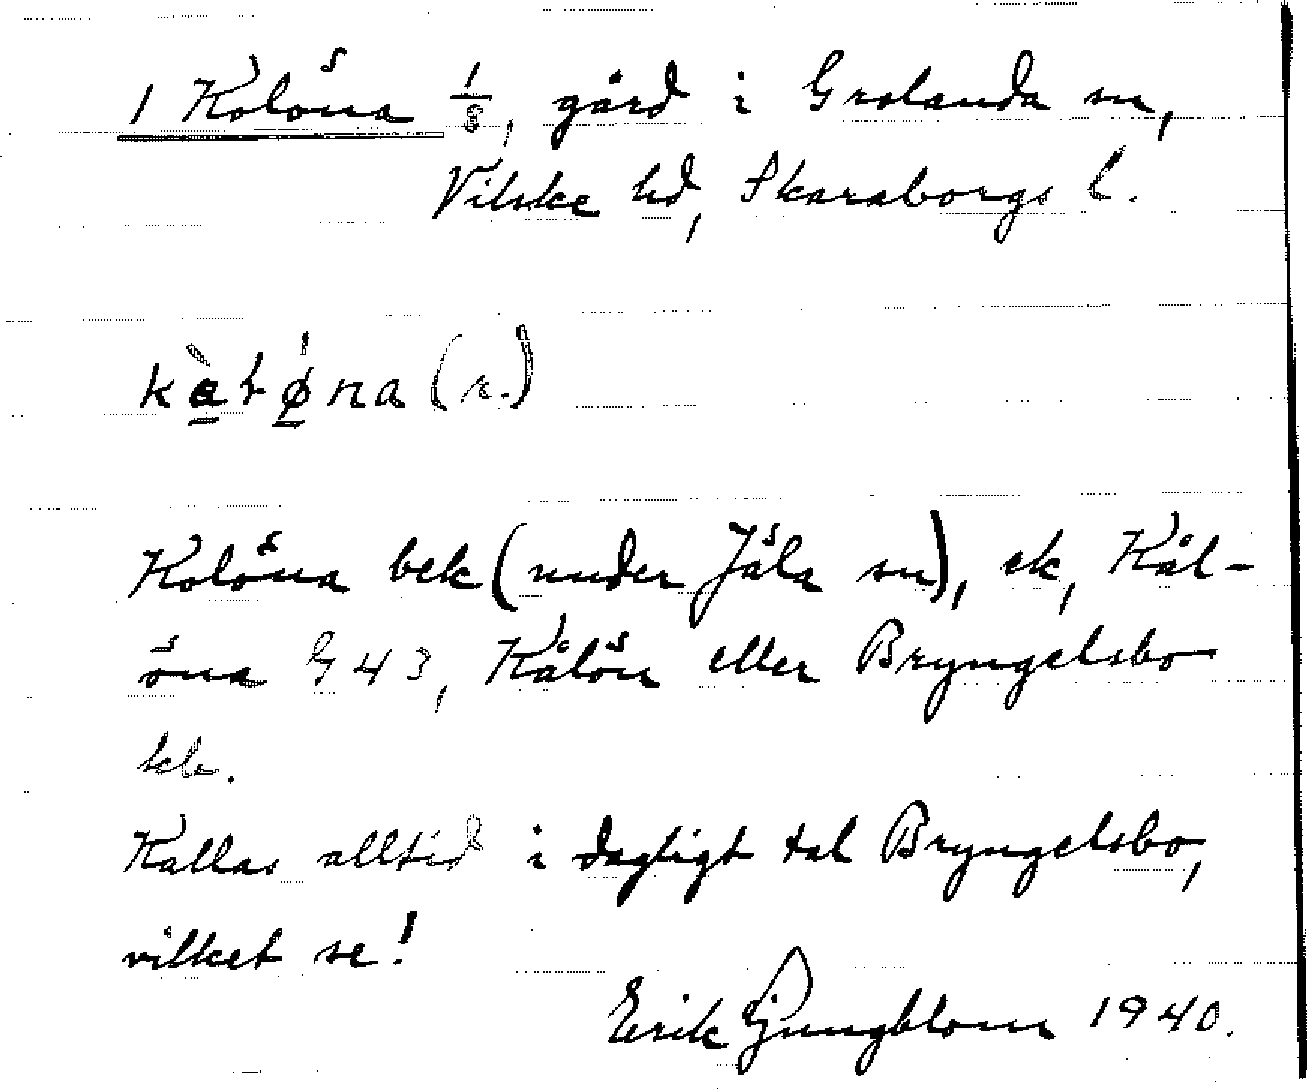 1 Kolöna 1/8, gård i Grolanda sn,
Vilske hd, Skaraborgs l.
(r.)
Kolöna bek (under Jäla sn), ek, Kål-
öna G 43, Kålön eller Bryngelsbo
Kallas alltid i dagligt tal Bryngelsbo,
vilket se!
Erik Ljungblom 1940.